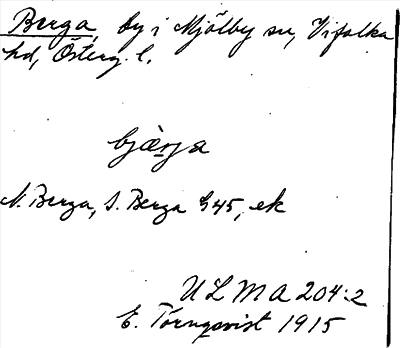 Berga, by i Mjölby sn, Vifolka
hd, Österg. l.
bjæ̀rja
N. Berga, S. Berga G45, ek
ULMA 204:2
E. Törnqvist 1915